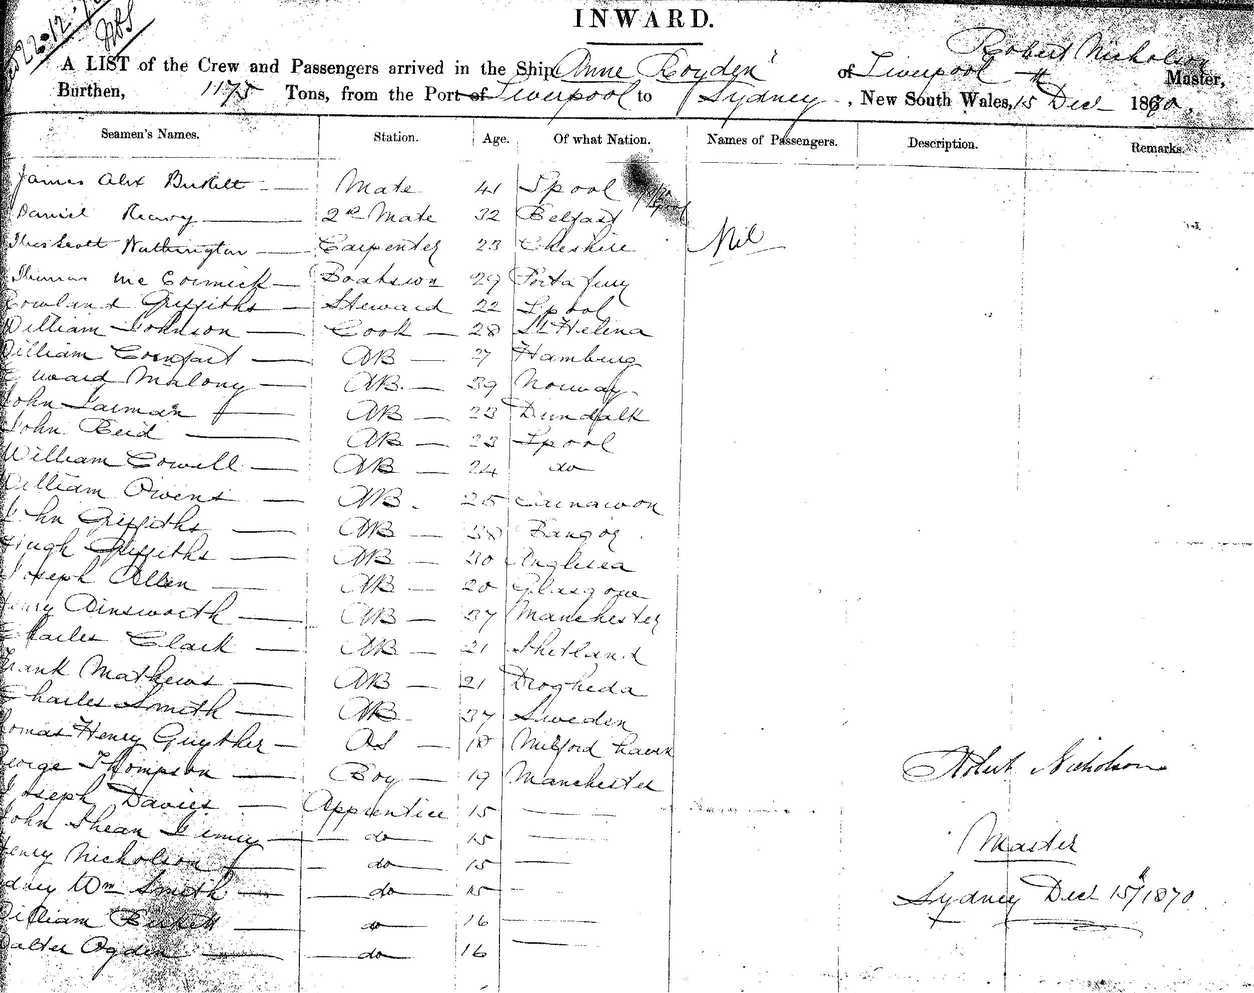 22.12.70
INWARD.
Robert Nicholson
A LIST of the Crew and Passengers arrived in the Ship "Anne Royden" of Liverpool Master,
Burthen, 1175 Tons, from the Port of Liverpool to Sydney, New South Wales, 15th Decr 1870.
Seamen's Names. Station. Age. Of what Nation. Names of Passengers. Description. Remarks.
James Alex Birkett — Mate 41 Lpool
Daniel — 2nd Mate 32 Belfast
Scott — Carpenter 23 Cheshire Nil
Thomas McCormick — Boatswn 29
Rowland Griffiths — Steward 22 Lpool
William Johnson — Cook — 28 St Helena
William — AB — 27 Hamburg
Edward Malony — AB — 39 Norway
John Jarman — AB — 23 Dundalk
John Reid — AB — 23 Lpool
William Cowell — AB — 24 do
William Owens — AB. 25 Carnarvon
John Griffiths — AB — 38 Bangor
Hugh Griffiths — AB — 30 Anglesea
Joseph Allen — AB — 20 Glasgow
Henry Ainsworth — AB — 37 Manchester
Charles Clark — AB — 21 Shetland
Frank Mathews — AB — 21 Drogheda
Charles Smith — AB 37 Sweden
Thomas Henry Guyther — OS — 18 Milford haven
George Thompson — Boy — 19 Manchester
Robert Nicholson
Joseph Davies — Apprentice 15 —
John — do 15 —
Master
Henry Nicholson — do 15 —
Sydney Wm Smith — do 15 -
Sydney Decr 15th/1870
William Birkett — do 16 —
Walter Ogden — do 16 —